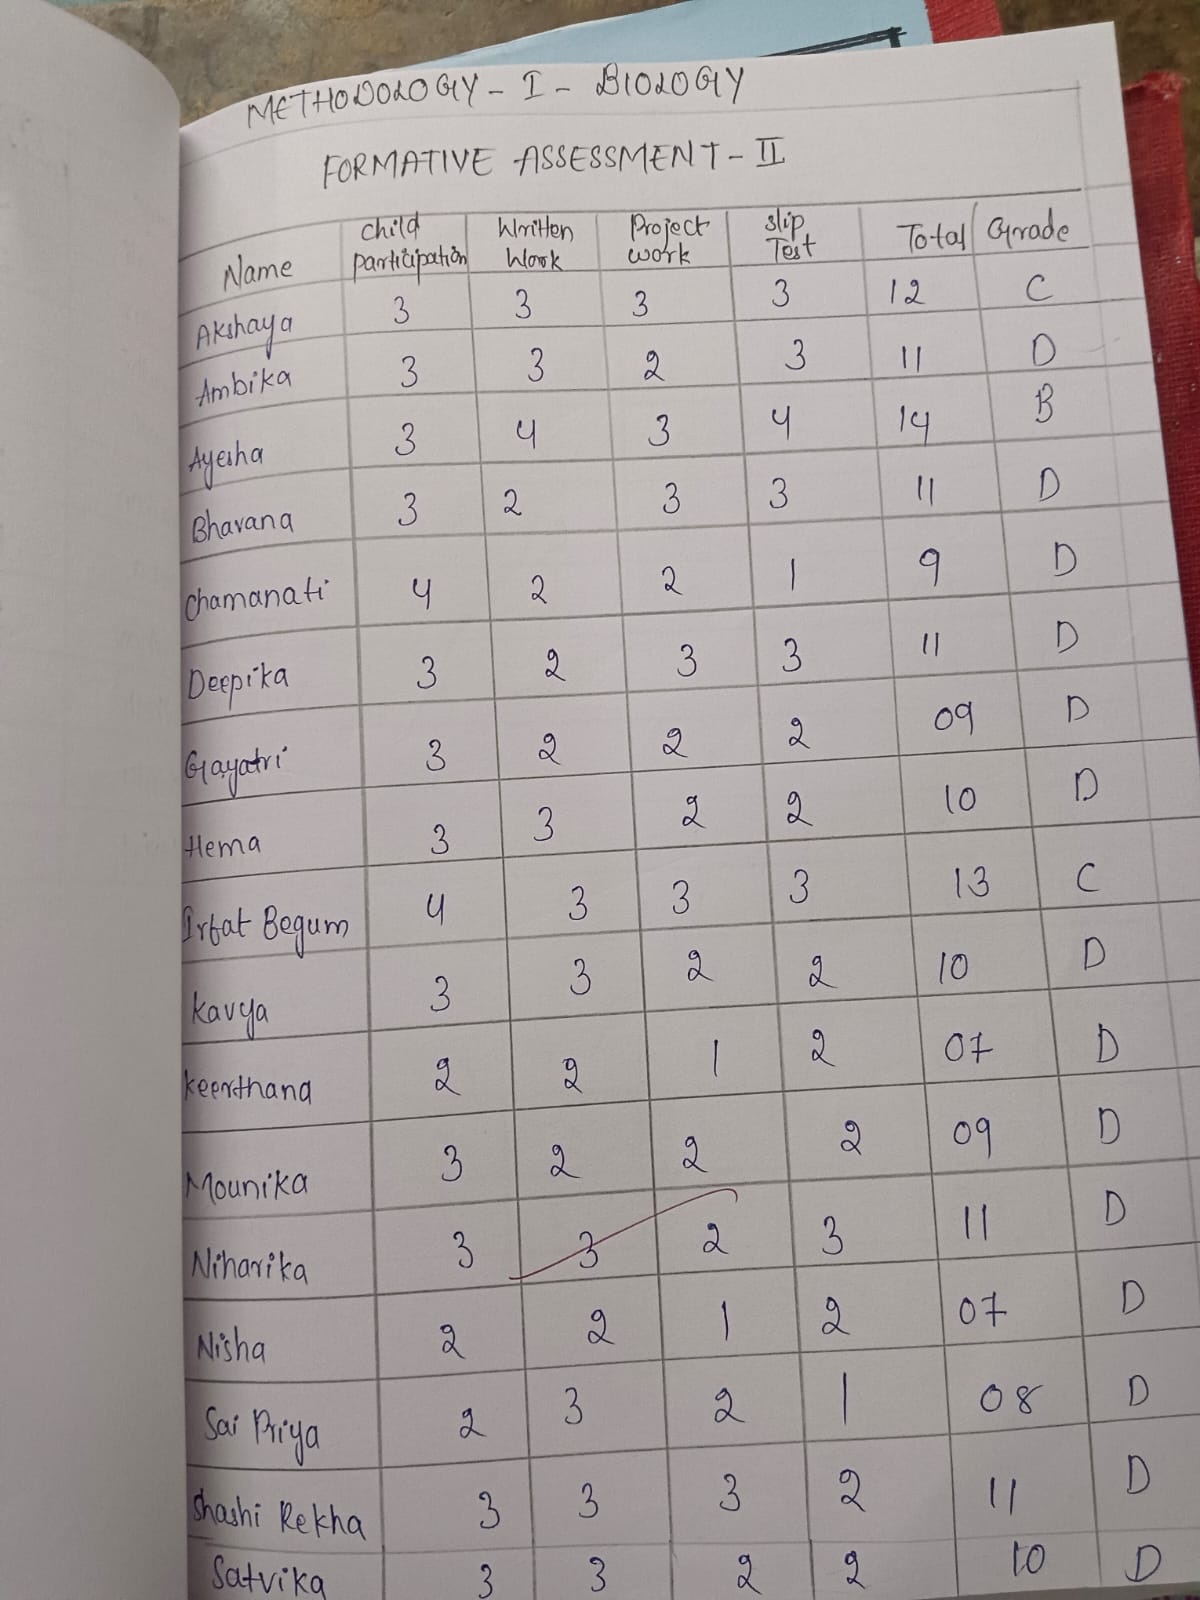 METHODOLOGY - I - BIOLOGY
FORMATIVE ASSESSMENT - II
Name child participation Written Work Project work slip Test Total Grade
Akshaya 3 3 3 3 12 C
Ambika 3 3 2 3 11 D
Ayesha 3 4 3 4 14 B
Bhavana 3 2 3 3 11 D
Chamanati 4 2 2 1 9 D
Deepika 3 2 3 3 11 D
Gayatri 3 2 2 2 09 D
Hema 3 3 2 2 10 D
Irfat Begum 4 3 3 3 13 C
Kavya 3 3 2 2 10 D
Keerthana 2 2 1 2 07 D
Mounika 3 2 2 2 09 D
Niharika 3 3 2 3 11 D
Nisha 2 2 1 2 07 D
Sai Priya 2 3 2 1 08 D
Shashi Rekha 3 3 3 2 11 D
Satvika 3 3 2 2 10 D